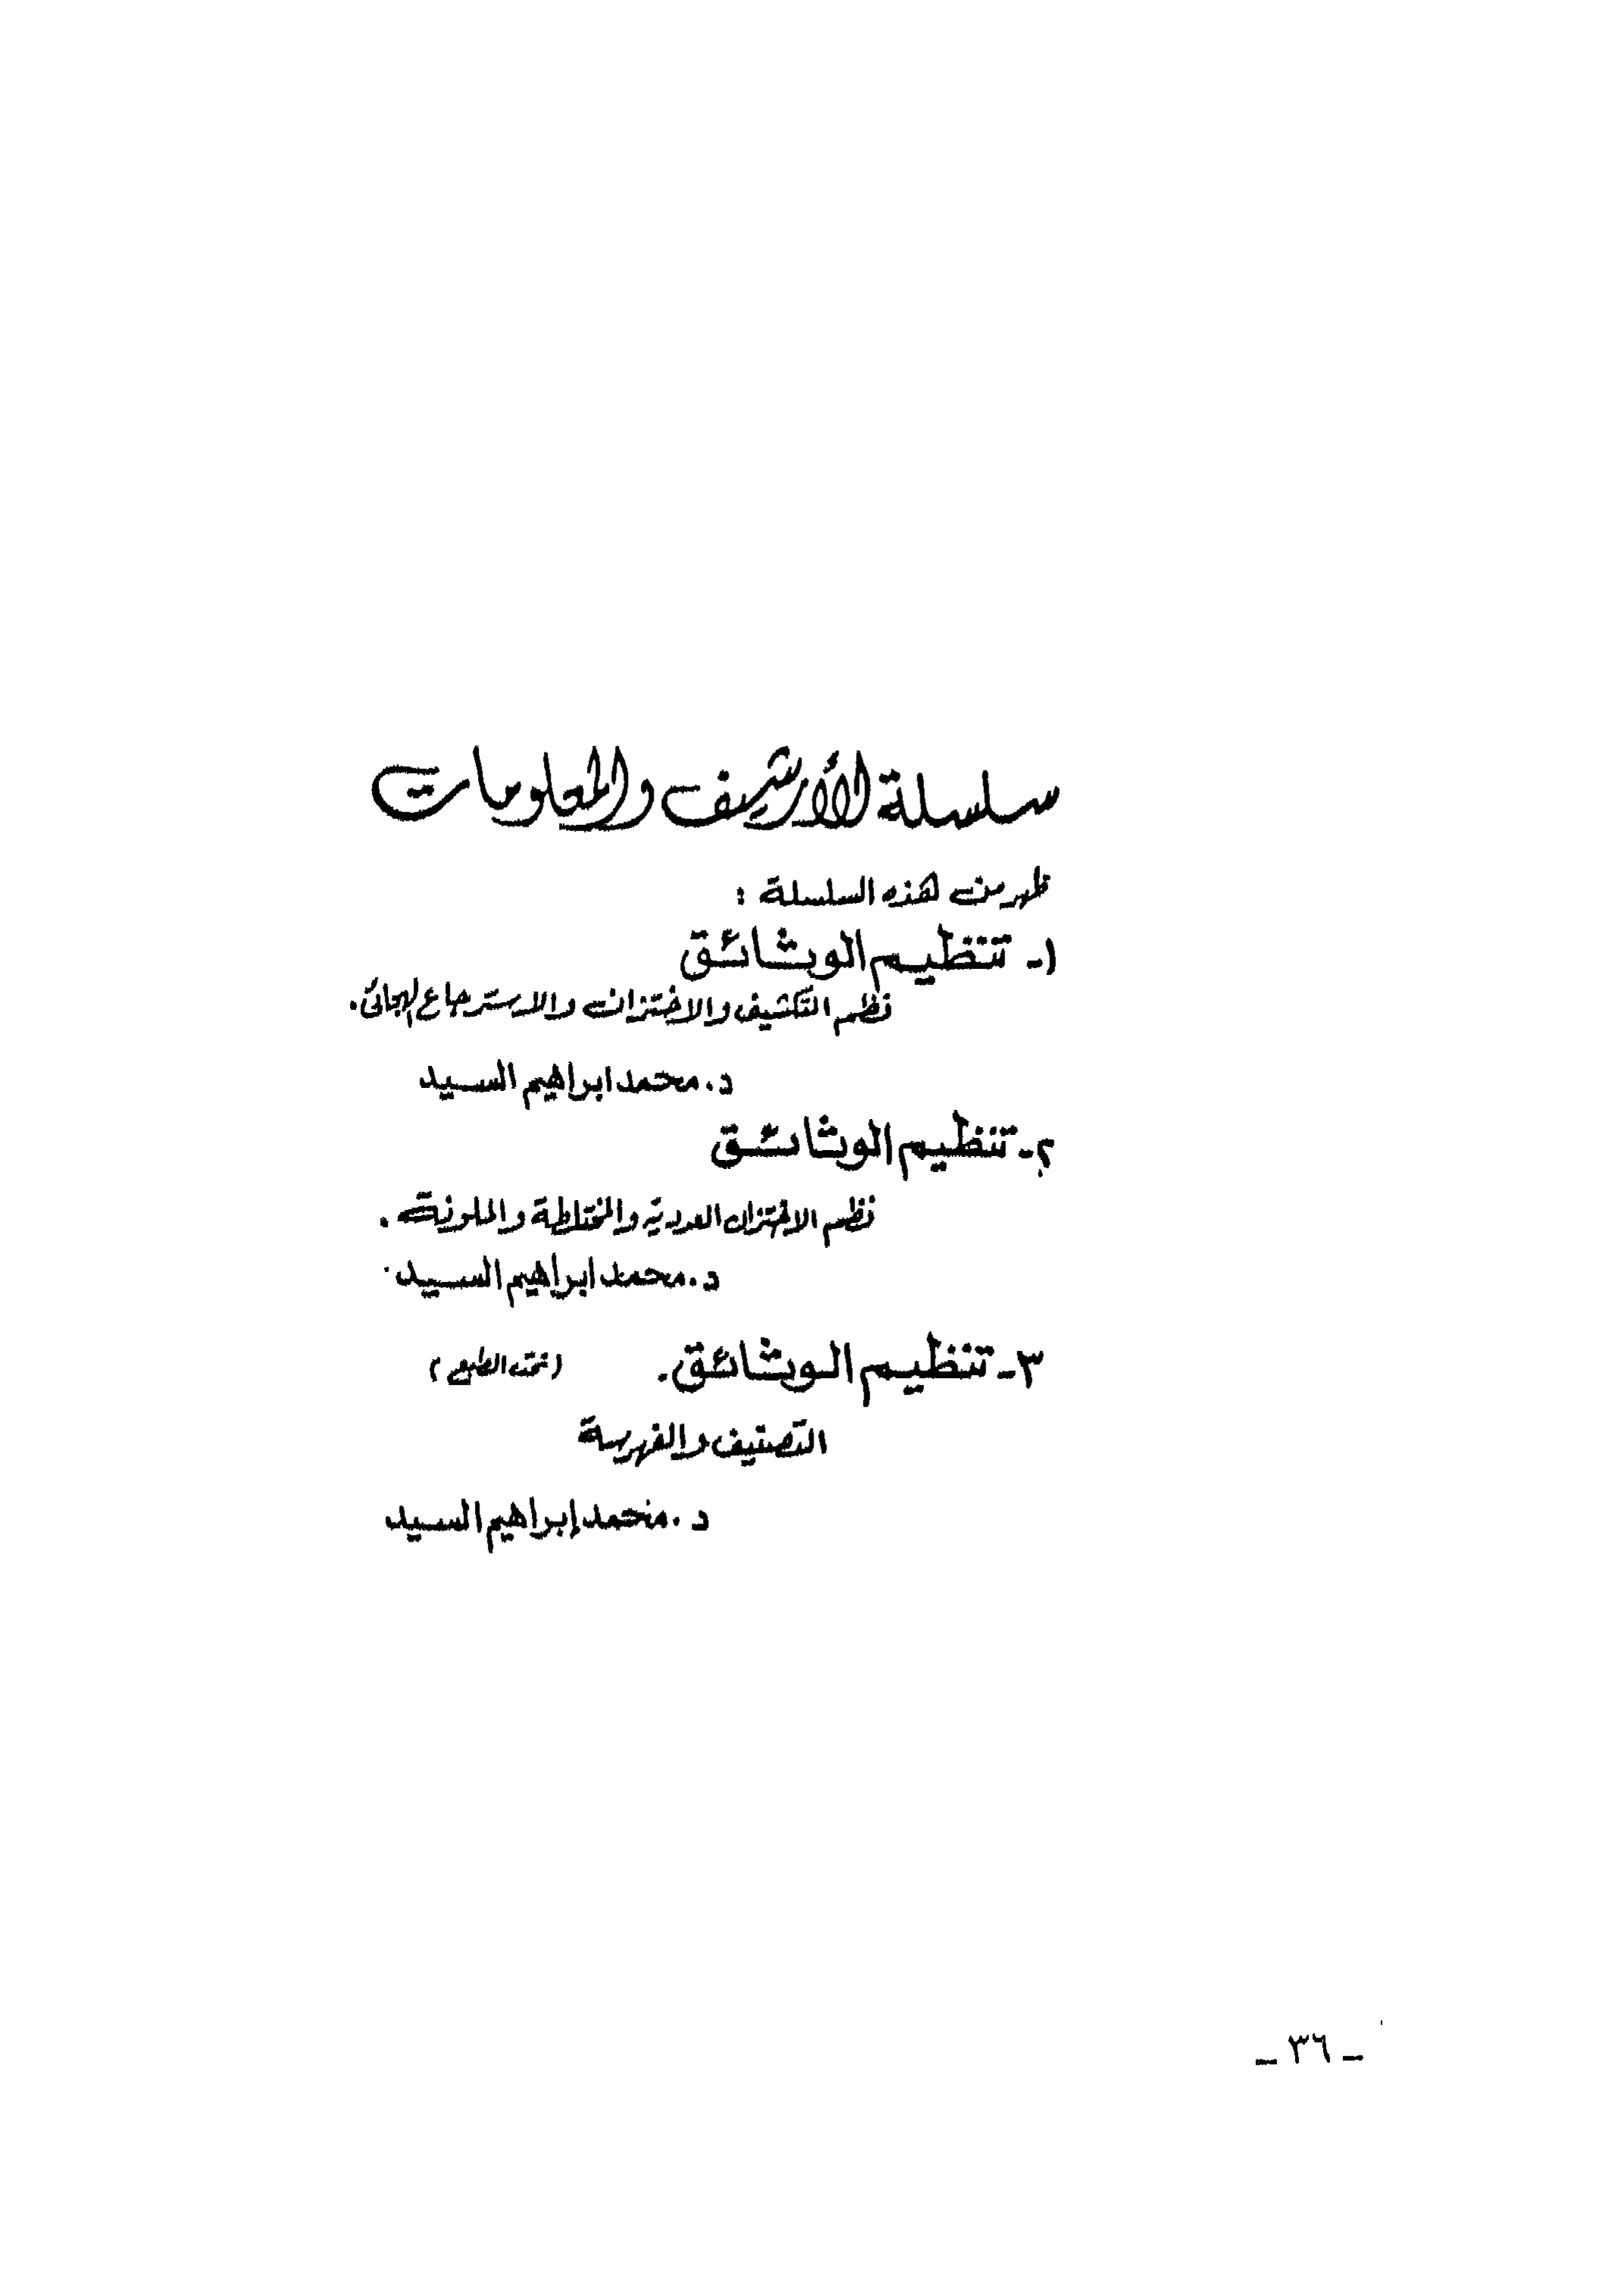 سلسلة الأرشيف والمعلومات
ظهر من هذه السلسلة :
١- تنظيم الوثائق
نظم التكشيف والاختزان والاسترجاع الهجائى.
د. محمد ابراهيم السيد
٢- تنظيم الوثائق
نظم الاختزان العددية والمختلطة والملونة.
د. محمد ابراهيم السيد
٣- تنظيم الوثائق. (تحت الطبع)
التصنيف والفهرسة
د. محمد إبراهيم السيد
ـ ٣٦ ـ